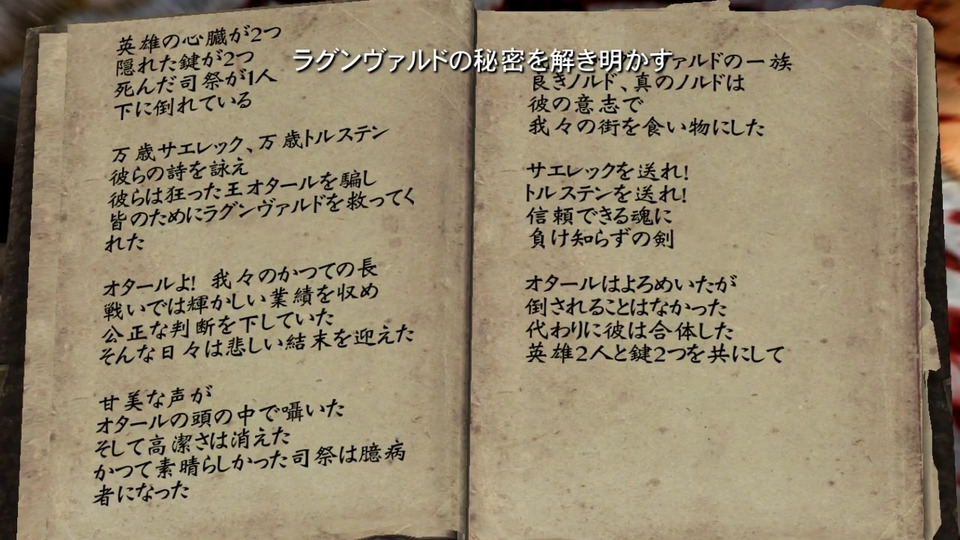 英雄の心臓が2つ
隠れた鍵が2つ
死んだ司祭が1人
下に倒れている
万歳サエレック、万歳トルステン
彼らの詩を詠え
彼らは狂った王オタールを騙し
皆のためにラグンヴァルドを救ってく
れた
オタールよ! 我々のかつての長
戦いでは輝かしい業績を収め
公正な判断を下していた
そんな日々は悲しい結末を迎えた
甘美な声が
オタールの頭の中で囁いた
そして高潔さは消えた
かつて素晴らしかった司祭は臆病
者になった
ラグンヴァルドの秘密を解き明かす
ァルドの一族
良きノルド、真のノルドは
彼の意志で
我々の街を食い物にした
サエレックを送れ!
トルステンを送れ!
信頼できる魂に
負け知らずの剣
オタールはよろめいたが
倒されることはなかった
代わりに彼は合体した
英雄2人と鍵2つを共にして